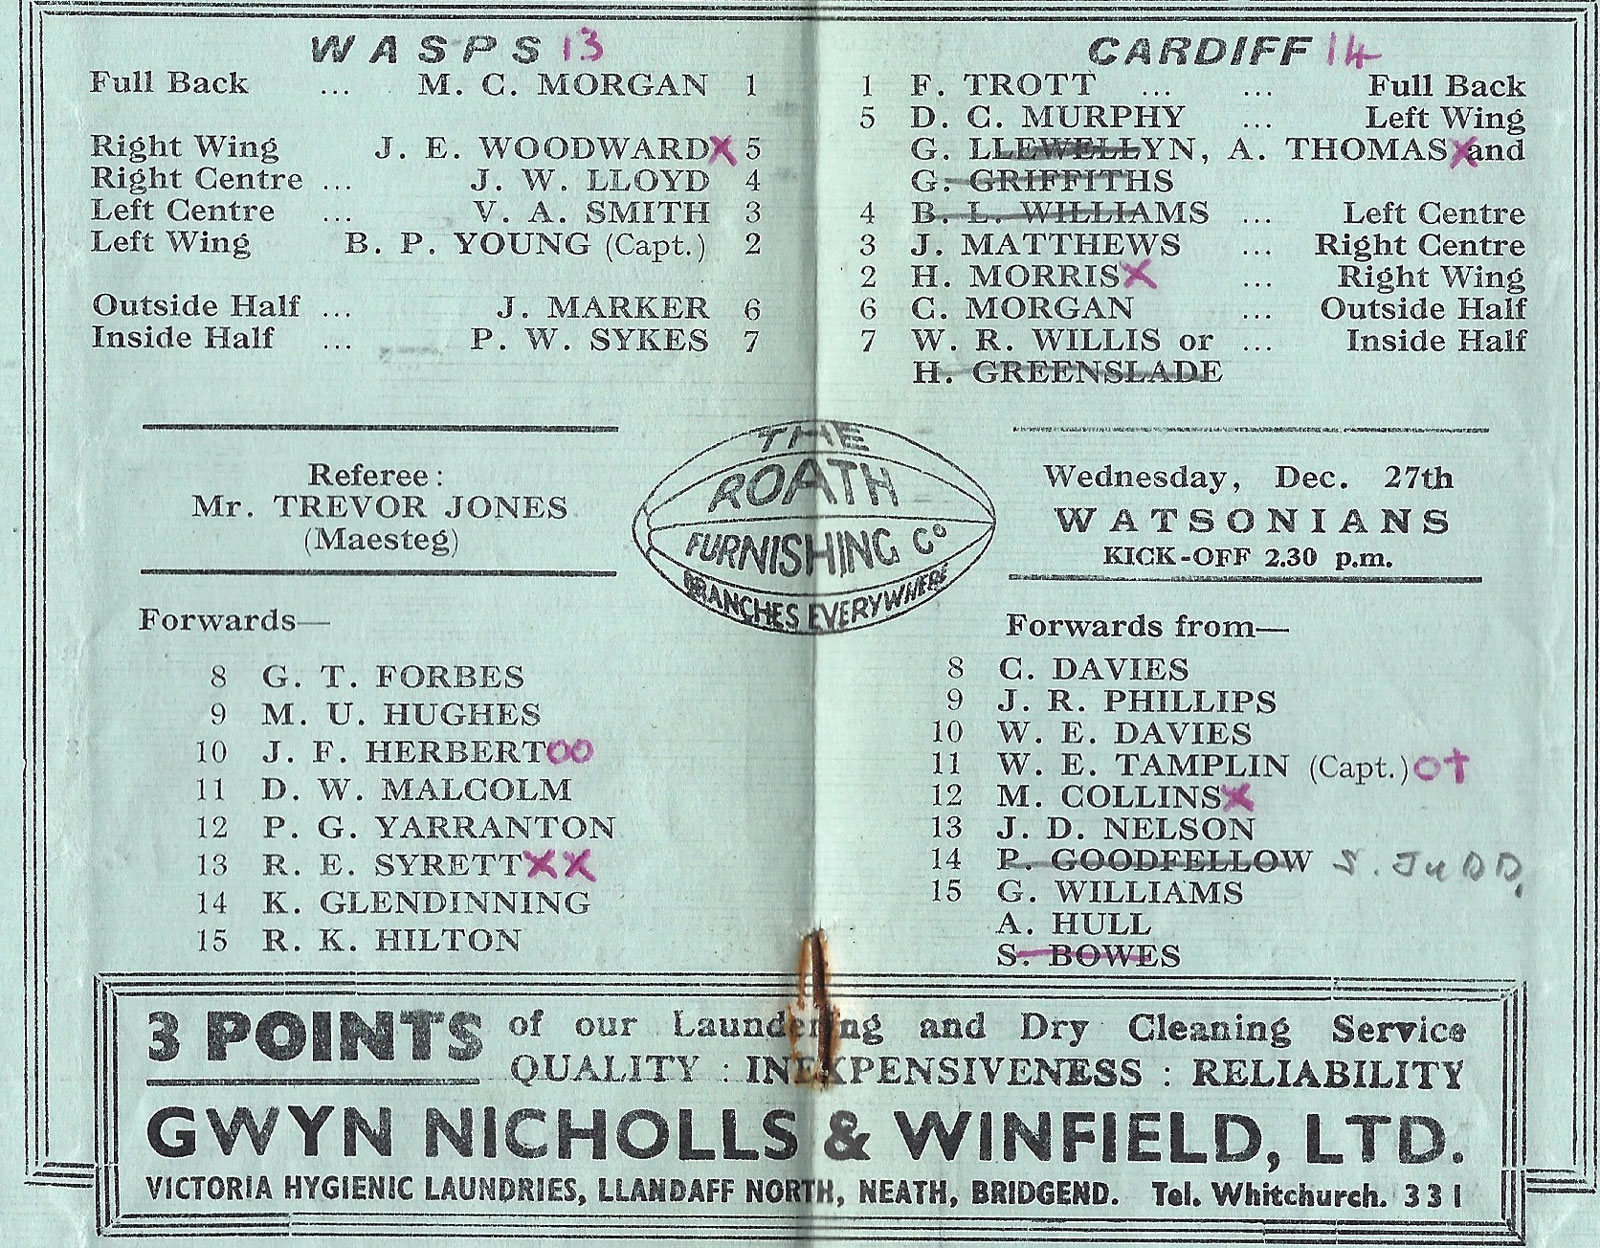 WASPS 13
Full Back ... M. C. MORGAN 1
Right Wing J. E. WOODWARDX 5
Right Centre ... J. W. LLOYD 4
Left Centre ... V. A. SMITH 3
Left Wing B. P. YOUNG (Capt.) 2
Outside Half ... J. MARKER 6
Inside Half ... P. W. SYKES 7
CARDIFF 14
1 F. TROTT ... ... Full Back
5 D. C. MURPHY ... Left Wing
G. LLEWELLYN, A. THOMASX and
G. GRIFFITHS
4 B. L. WILLIAMS ... Left Centre
3 J. MATTHEWS ... Right Centre
2 H. MORRISX ... Right Wing
6 C. MORGAN ... Outside Half
7 W. R. WILLIS or ... Inside Half
H. GREENSLADE
Referee:
Mr. TREVOR JONES
(Maesteg)
THE
ROATH
FURNISHING Co
BRANCHES EVERYWHERE
Wednesday, Dec. 27th
WATSONIANS
KICK-OFF 2.30 p.m.
Forwards—
8 G. T. FORBES
9 M. U. HUGHES
10 J. F. HERBERTOO
11 D. W. MALCOLM
12 P. G. YARRANTON
13 R. E. SYRETTXX
14 K. GLENDINNING
15 R. K. HILTON
Forwards from—
8 C. DAVIES
9 J. R. PHILLIPS
10 W. E. DAVIES
11 W. E. TAMPLIN (Capt.)O†
12 M. COLLINSX
13 J. D. NELSON
14 P. GOODFELLOW S. JUDD.
15 G. WILLIAMS
A. HULL
S. BOWES
3 POINTS of our Laundering and Dry Cleaning Service
QUALITY : INEXPENSIVENESS : RELIABILITY
GWYN NICHOLLS & WINFIELD, LTD.
VICTORIA HYGIENIC LAUNDRIES, LLANDAFF NORTH, NEATH, BRIDGEND. Tel. Whitchurch. 331